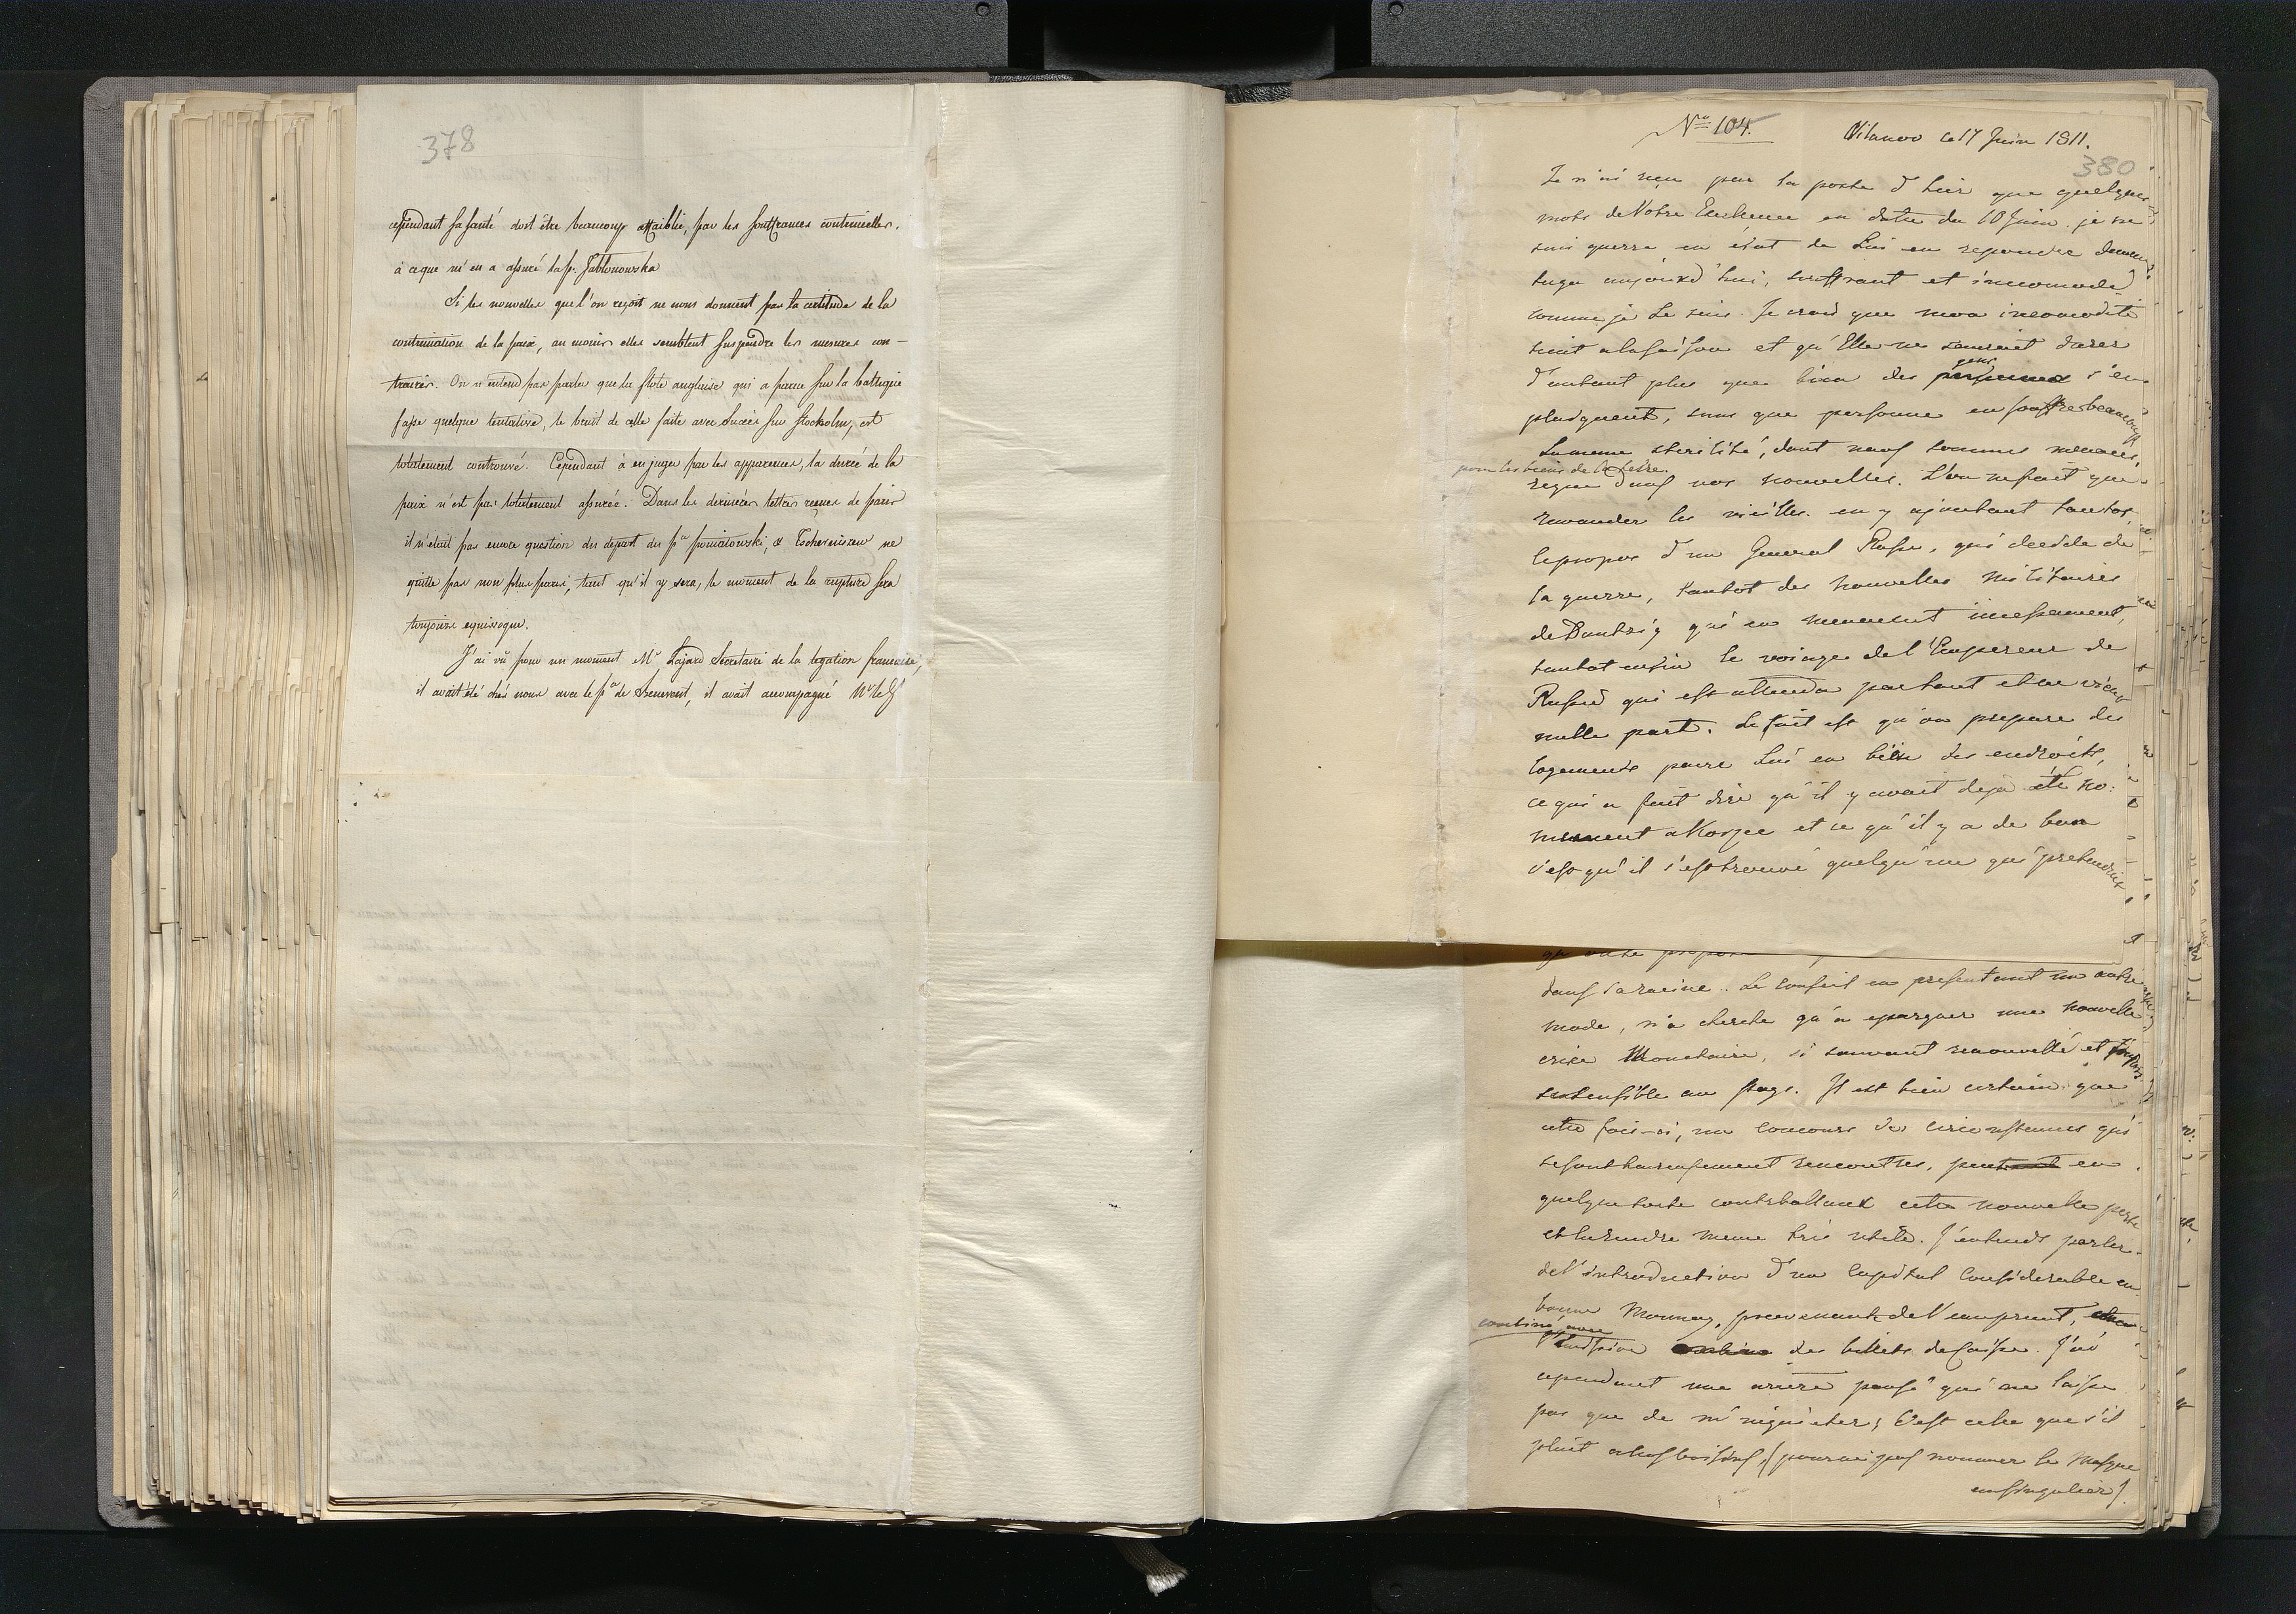 378
cependant sa santé doit être beaucoup affaiblie, par les souffrances continuelles.
à ce que m'en a assuré la p. Jablonowska
Si les nouvelles que l'on reçoit ne nous donnent pas la certitude de la
continuation de la paix, au moins elles semblent suspendre les mesures con-
traires. On n'entend pas parler que la flote anglaise qui a parue sur la baltique
fasse quelque tentative, le bruit de celle faite avec succès sur Stockolm, est
totalement controuvé. Cependant à en juger par les apparences, la durée de la
paix n'est pas totalement assurée. Dans les dernières lettres reçues de paris
il n'etait pas encore question du depart du p^ce poniatowski, & Tschernischew ne
quitte pas non plus paris, tant qu'il y sera, le moment de la rupture sera
toujours equivoque.
J'ai vû pour un moment M^r Lajard Secretaire de la legation francaise,
il avait été chés nous avec le p^ce de Benevent, il avait accompagné
N^o 104. Vilanov ce 17 Juin 1811.
380
Je n'ai reçu par la poste d'hier que quelques
mots de Votre Excellence en date du 10 Juin. je ne
suis guerre en état de Lui en repondre davan-
tage aujourd'hui, souffrant et incomodé
comme je Le suis. Je crois que mon incomodité
tient a la saison et qu'Elle ne saurait durer
d'autant plus que bien des gens s'en
plaignent, sans que personne en souffre beaucoup
La meme sterilité, dont nous sommes menacés,
pour les biens de la terre.
regne dans nos nouvelles. L'on ne fait que
ramander les vieilles en y ajoutant tantot
le propos d'un General Russe, qui decide de
la guerre, tantot des nouvelles militaires
de Dantzig qui en menacent incessament,
tantot enfin le voiage de l'Empereur de
Russie qui est attendu partout et ne vient
nulle part. Le fait est qu'on prepare des
logements pour Lui en bien des endroits,
ce qui a fait dire qu'il y avait deja été no-
mement a Korzec et ce qu'il y a de bon
c'est qu'il s'est trouvé quelqu'un qui pretendait
dans sa racine. Le Conseil en presentant un autre
mode, n'a cherché qu'a epargner une nouvelle
crise Monetaire, si souvent renouvellé et
sensible au pays. Il est bien certain que
cette fois-ci, un concours des circonstances qui
se sont heureusement rencontrés, peut en
quelque sorte contreballancer cette nouvelle perte
et la rendre meme très utile. J'entends parler
de l'introduction d'un Capital Considerable en
bonne Monnay, provenant de l'emprunt,
combiné avec
l'emission des billets de Caisse. J'ai
cependant une arriere pensé qui ne laisse
pas que de m'inquieter; C'est celle que s'il
plait a nos voisins, (pourne pas nommer le Masque
en singulier).